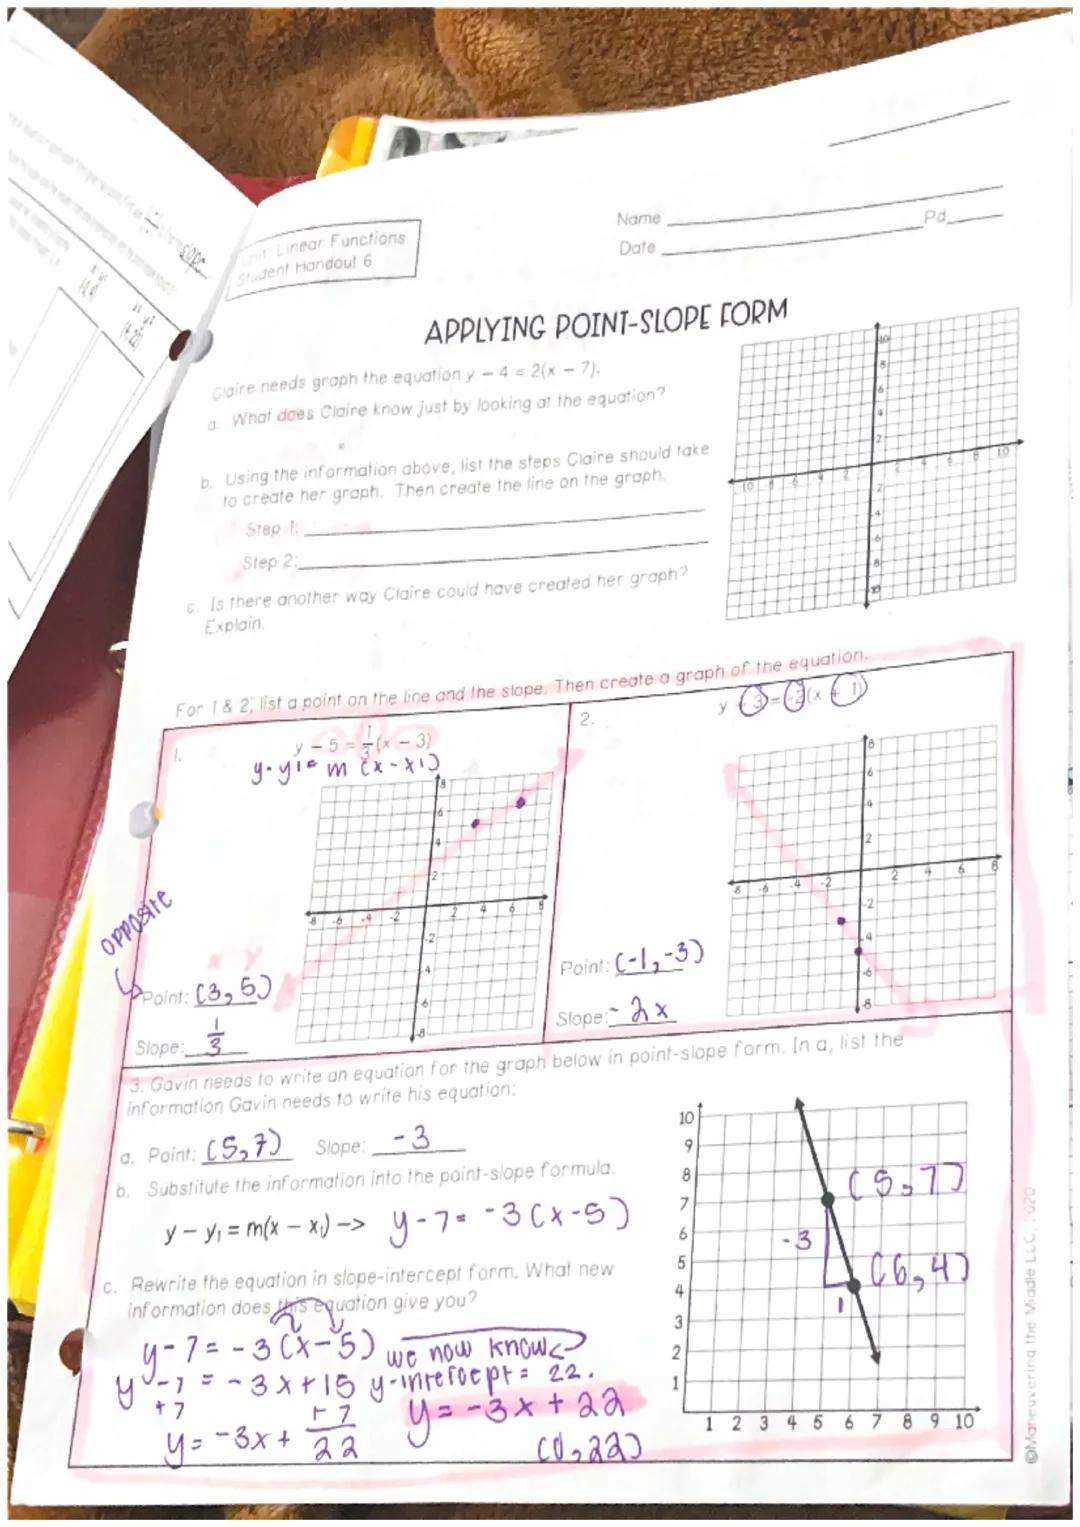 slope
Name Pd
Unit: Linear Functions
Student Handout 6
Date
APPLYING POINT-SLOPE FORM
Claire needs graph the equation y – 4 = 2(x – 7).
a. What does Claire know just by looking at the equation?
b. Using the information above, list the steps Claire should take
to create her graph. Then create the line on the graph.
Step 1:
Step 2:
c. Is there another way Claire could have created her graph?
Explain.
For 1 & 2, list a point on the line and the slope. Then create a graph of the equation.
1.
y – 5 = 1/3(x – 3)
y-y1= m (x-x1)
opposite
x y
Point: (3,5)
Slope: 1/3
2.
y + 3 = -2(x + 1)
Point: (-1,-3)
Slope: -2x
3. Gavin needs to write an equation for the graph below in point-slope form. In a, list the
information Gavin needs to write his equation:
a. Point: (5,7) Slope: -3
b. Substitute the information into the point-slope formula.
y – y₁ = m(x – x₁) –> y-7= -3(x-5)
c. Rewrite the equation in slope-intercept form. What new
information does this equation give you?
y-7= -3(x-5) we now know
y-7 = -3x+15 y-intercept= 22.
+7 +7
y= -3x+ 22
y= -3x+22
(0,22)
10
9
8 (5,7)
7
6 -3
5
4 (6,4)
1
3
2
1
1 2 3 4 5 6 7 8 9 10
©Maneuvering the Middle LLC, 2020